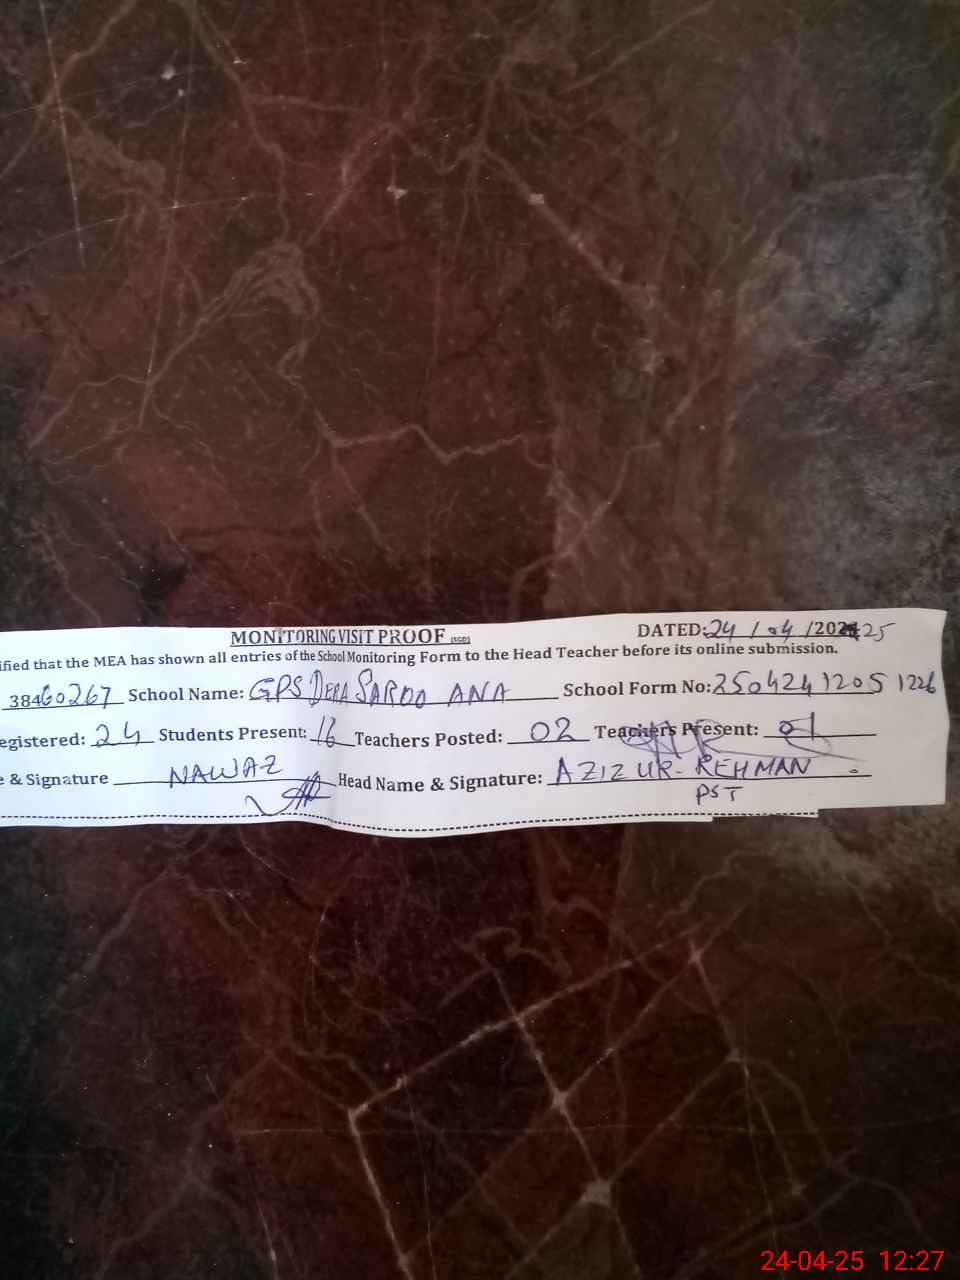 MONITORING VISIT PROOF (SGD) DATED: 24/04/2025
ified that the MEA has shown all entries of the School Monitoring Form to the Head Teacher before its online submission.
38460267 School Name: GPS DERA SAROO ANA School Form No: 2504241205 1226
egistered: 24 Students Present: 16 Teachers Posted: 02 Teachers Present: 01
e & Signature NAWAZ Head Name & Signature: AZIZ UR-REHMAN
PST
24-04-25 12:27